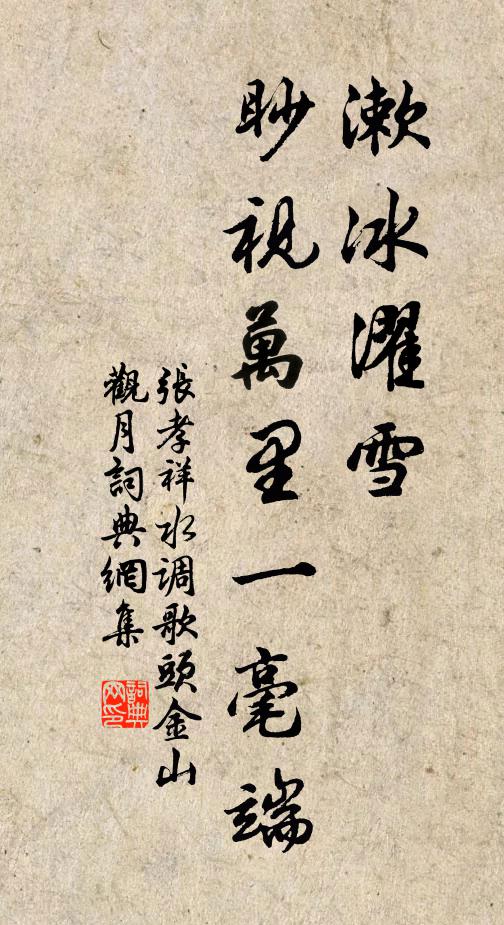 漱冰濯雪
眇視萬里一毫端
張孝祥水調歌頭金山
觀月詞典網集
詞典
网印